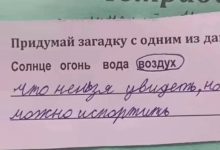 Придумай загадку с одним из да
Солнце огонь вода воздух
что нельзя увидеть, но
можно испортить